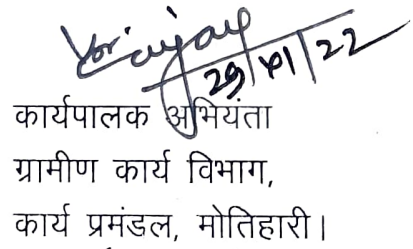 29/11/22
कार्यपालक अभियंता
ग्रामीण कार्य विभाग,
कार्य प्रमंडल, मोतिहारी।